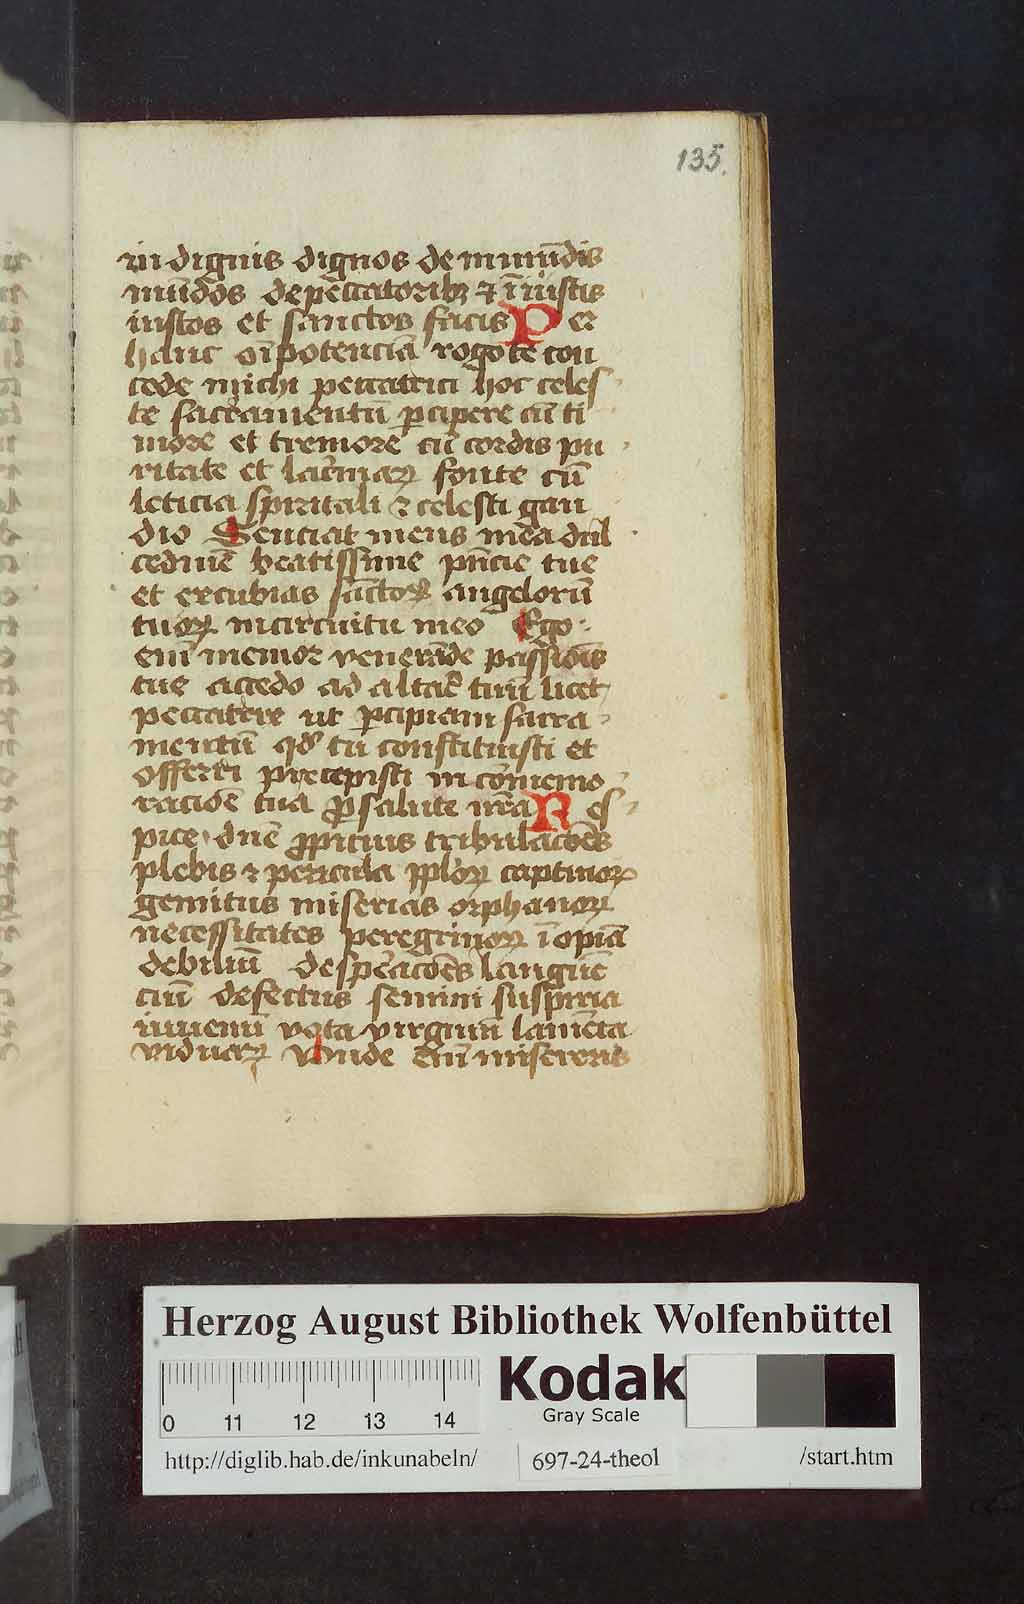 135.
indignis dignos de mmu̅dis
mu̅dos de pec̅catoribꝫ ⁊ i̅iustis
iustos et sanctos facis Per
hanc oi̅potencia̅ rogo te con
cede michi peccatrici hoc celes
te sacramentu̅ ꝑcipere cu̅ ti
more et tremore cu̅ cordis pu
ritate et lac̓maꝝ fonte cu̅
leticia spiritali ⁊ celesti gau
dio Senciat mens mea dul
cedine̅ beatissime pn̅cie tue
et excubias sa̅ctoꝝ angeloru̅
tuoꝝ in circuitu meo Ego
eni̅ memor venera̅de passio̅is
tue accedo ad altar̓ tuu̅ licet
peccatrix ut ꝑcipiam sacra
mentu̅ qd̓ tu constituisti et
offerri precepisti in co̅memo
racio̅e tua ꝓ salute nr̅a Res
pice dn̅e ꝓpicius tribulacio̅es
plebis ⁊ pericula pp̅loꝝ captiuoꝝ
gemitus miserias orphanoꝝ
necessitates peregrinoꝝ i̅opia̅
debiliu̅ desp̓acio̅es langue̅
ciu̅ defectus senium suspiria
iuuenu̅ vota virginu̅ lame̅ta
viduaꝝ Unde eni̅ misereris
Herzog August Bibliothek Wolfenbüttel
0 11 12 13 14
Kodak
Gray Scale
http://diglib.hab.de/inkunabeln/
697-24-theol
/start.htm